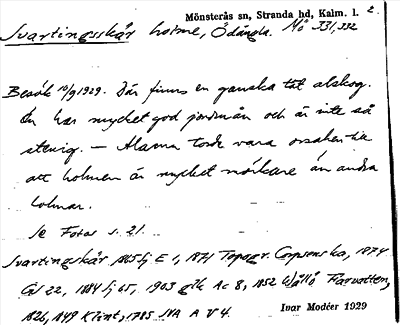 Mönsterås sn, Stranda hd, Kalm. l. 2.
Svartingsskär holme, Ödängla. Mö 331, 332
Besök 10/9 1929. Där finns en ganska tät alskog.
Ön har mycket god jordmån och är inte så
stenig. — Alarna torde vara orsaken till
att holmen är mycket mörkare än andra
holmar.
Se Fotos s. 21.
Svartingskär 1865 lj E 1, 1871 Topogr. Corpsens ka, 1874
Gs 22, 1884 lj 65, 1903 gik Ac 8, 1852 Wållö Farvatten,
1826, 1849 Klint, 1785 A V 4.
Ivar Modéer 1929